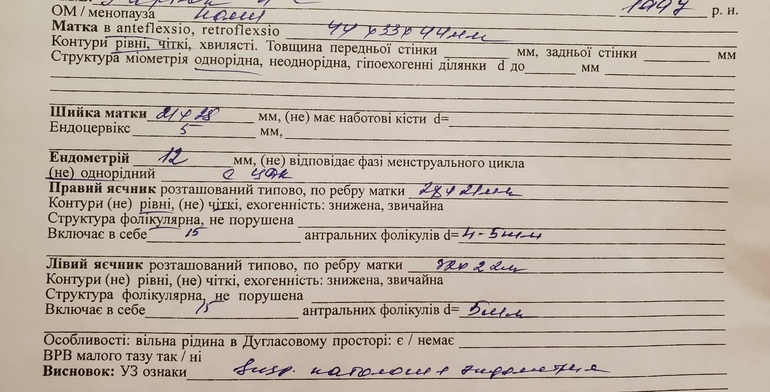 ОМ / менопауза 1997 р. н.
Матка в anteflexsio, retroflexsio 44x33x44мм
Контури рівні, чіткі, хвилясті. Товщина передньої стінки мм, задньої стінки мм
Структура міометрія однорідна, неоднорідна, гіпоехенні ділянки d до мм
Шийка матки 21x28 мм, (не) має наботові кісти d=
Ендоцервікс 5 мм,
Ендометрій 12 мм, (не) відповідає фазі менструального цикла
(не) однорідний с
Правий яєчник розташований типово, по ребру матки 28x21мм
Контури (не) рівні, (не) чіткі, ехогенність: знижена, звичайна
Структура фолікулярна, не порушена
Включає в себе 15 антральних фолікулів d= 4-5мм
Лівий яєчник розташований типово, по ребру матки
Контури (не) рівні, (не) чіткі, ехогенність: знижена, звичайна
Структура фолікулярна, не порушена
Включає в себе 15 антральних фолікулів d= 5мм
Особливості: вільна рідина в Дугласовому просторі: є / немає
ВРВ малого тазу так / ні
Висновок: УЗ ознаки Susp. патология эндометрия